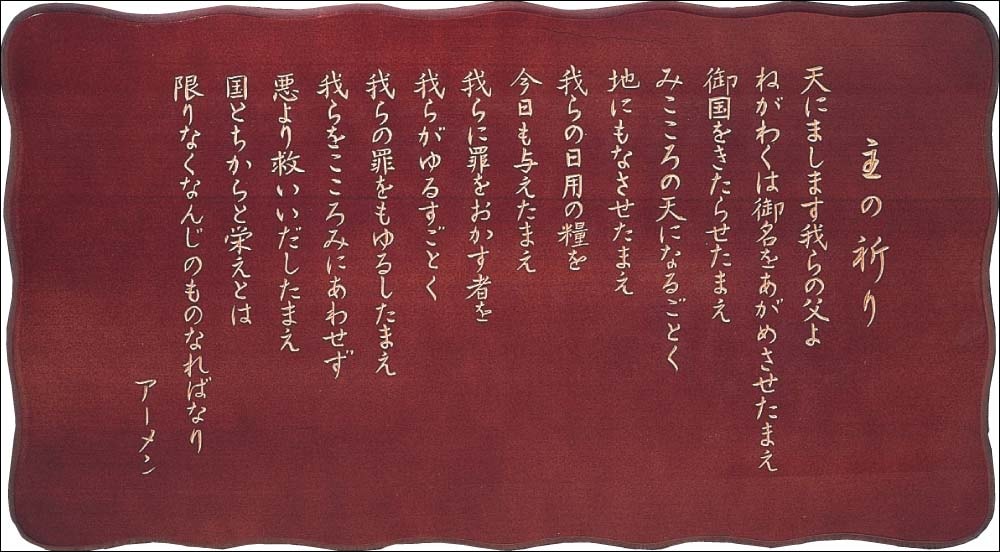 主の祈り
天にまします我らの父よ
ねがわくは御名をあがめさせたまえ
御国をきたらせたまえ
みこころの天になるごとく
地にもなさせたまえ
我らの日用の糧を
今日も与えたまえ
我らに罪をおかす者を
我らがゆるすごとく
我らの罪をもゆるしたまえ
我らをこころみにあわせず
悪より救いいだしたまえ
国とちからと栄えとは
限りなくなんじのものなればなり
アーメン